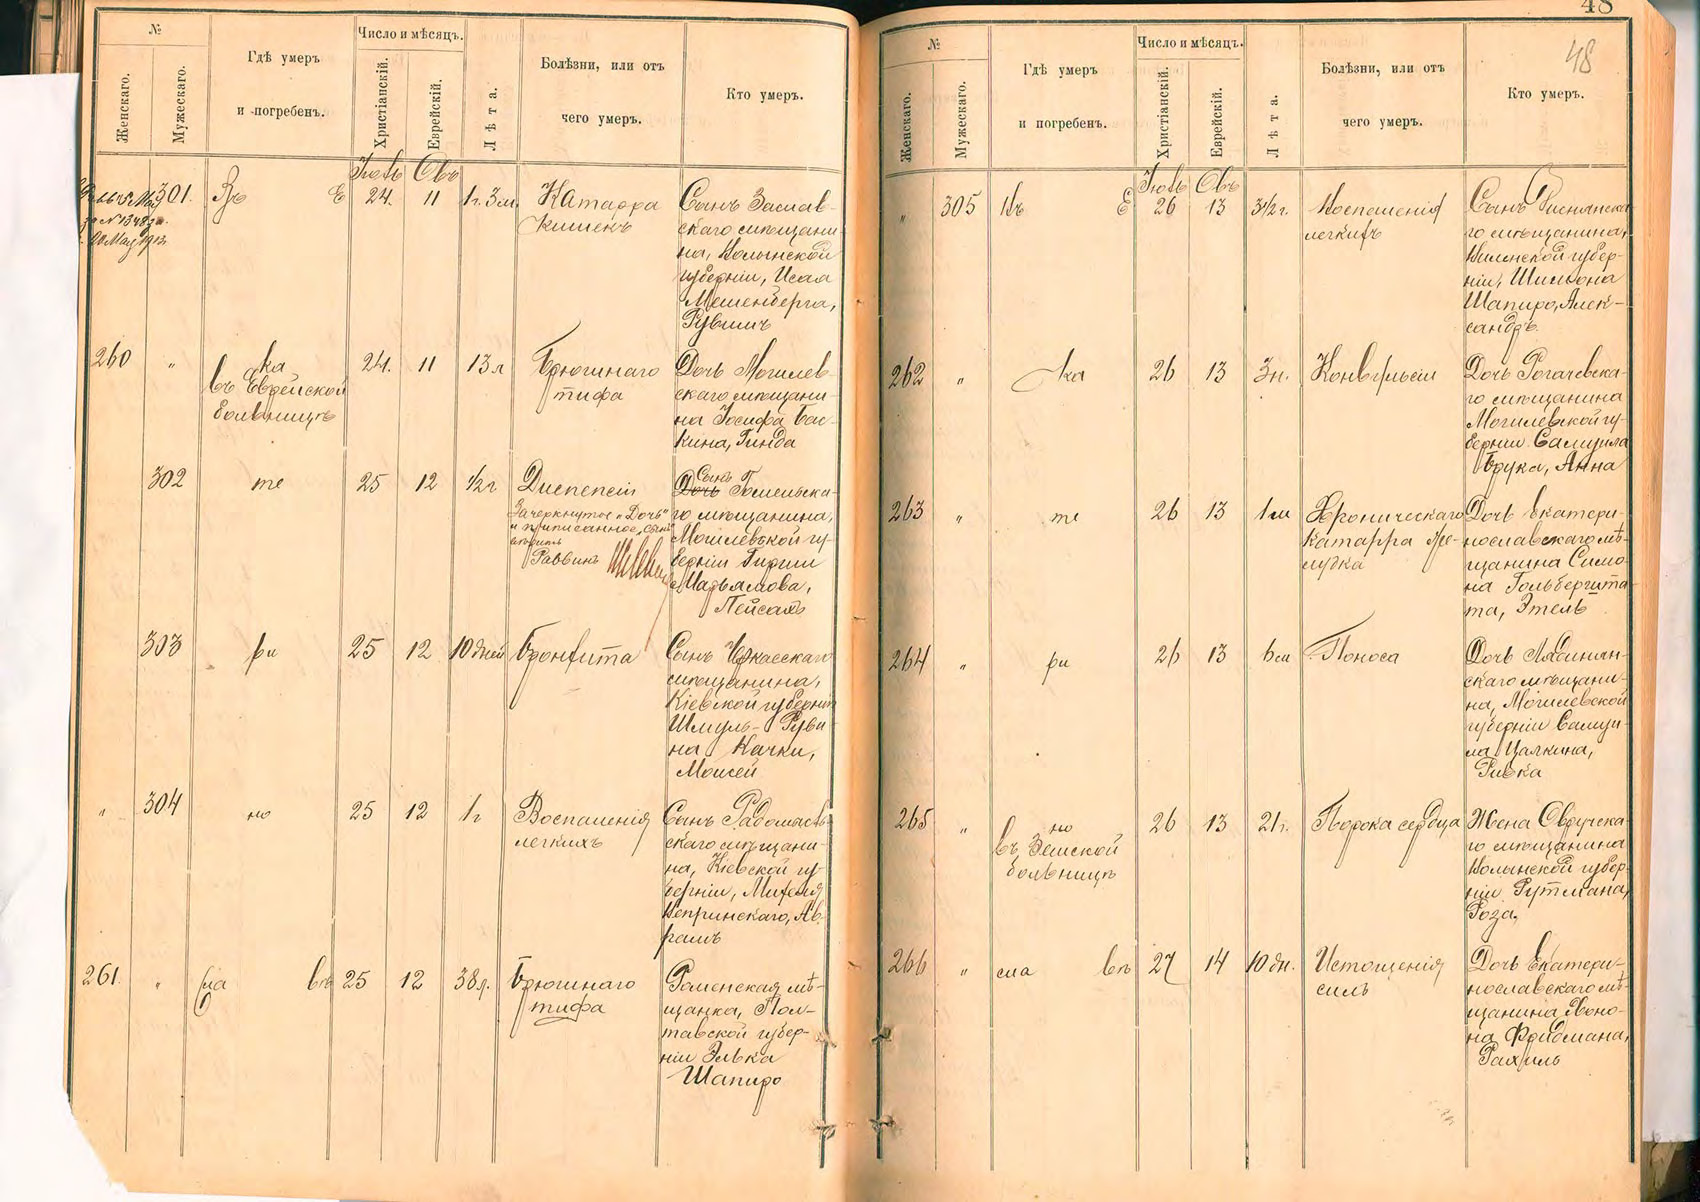 №
Женскаго.
Мужескаго.
Гдѣ умеръ
и погребенъ.
Число и мѣсяцъ.
Христіанскій.
Еврейскій.
Лѣта.
Болѣзни, или отъ
чего умеръ.
Кто умеръ.
Іюль Овъ
301. Въ Е 24. 11 1г. 3м.
Катарра
кишекъ
Сынъ Заслав-
скаго мѣщани-
на, Волынской
губерніи, Исаа
Мешенберга,
Рувинъ
20 Мая 1913
260 " ка
въ Еврейской
больницѣ
24. 11 13л
Брюшнаго
тифа
Дочь Могилев-
скаго мѣщани-
на Іосифа Бас-
кина, Гинда
302 те 25 12 1/2г
Диспепсіи
Зачеркнутое "Дочь"
и приписанное "Сынъ"
вѣрить
Раввинъ
Сынъ
Дочь Гомельска-
го мѣщанина,
Могилевской гу-
берніи Гирши
Марьямова,
Пейсахъ
303 ри 25 12 10 дней
Бронхита
Сынъ Черкасскаго
мѣщанина,
Кіевской губерніи
Шмуль-Руви-
на Качки,
Моисей
" 304 но 25 12 1г
Воспаленія
легкихъ
Сынъ Радомысль-
скаго мѣщани-
на, Кіевской гу-
берніи,
Вепринскаго, Ав-
рамъ
261. " сла вѣ 25 12 38л.
Брюшнаго
тифа
Роменская мѣ-
щанка, Пол-
тавской губер-
ніи Элька
Шапиро
48
48
№
Женскаго.
Мужескаго.
Гдѣ умеръ
и погребенъ.
Число и мѣсяцъ.
Христіанскій.
Еврейскій.
Лѣта.
Болѣзни, или отъ
чего умеръ.
Кто умеръ.
Іюль Овъ
" 305 Въ Е 26 13 3 1/2 г.
Воспаленія
легкихъ
Сынъ Диснянска-
го мѣщанина,
Виленской губер-
ніи, Шимона
Шапиро, Алек-
сандръ.
262 " ка 26 13 3н. Конвульсіи
Дочь Рогачевска-
го мѣщанина
Могилевской гу-
берніи Самуила
Брука, Анна
263 " те 26 13 1м
Хроническаго
катарра же-
лудка
Дочь Екатери-
нославскаго мѣ-
щанина Симо-
на Гольбершта-
та, Этель
264 " ри 26 13 6м Поноса
Дочь
скаго мѣщани-
на, Могилевской
губерніи Самуи-
ла Цалкина,
Ривка
265 " но
въ Земской
больницѣ
26 13 21г. Порока сердца
Жена Овручска-
го мѣщанина
Волынской губер-
ніи Рутмана,
Роза,
266 " сла вѣ 27 14 10 дн.
Истощенія
силъ
Дочь Екатери-
нославскаго мѣ-
щанина Хоно-
на Фридмана,
Рахиль